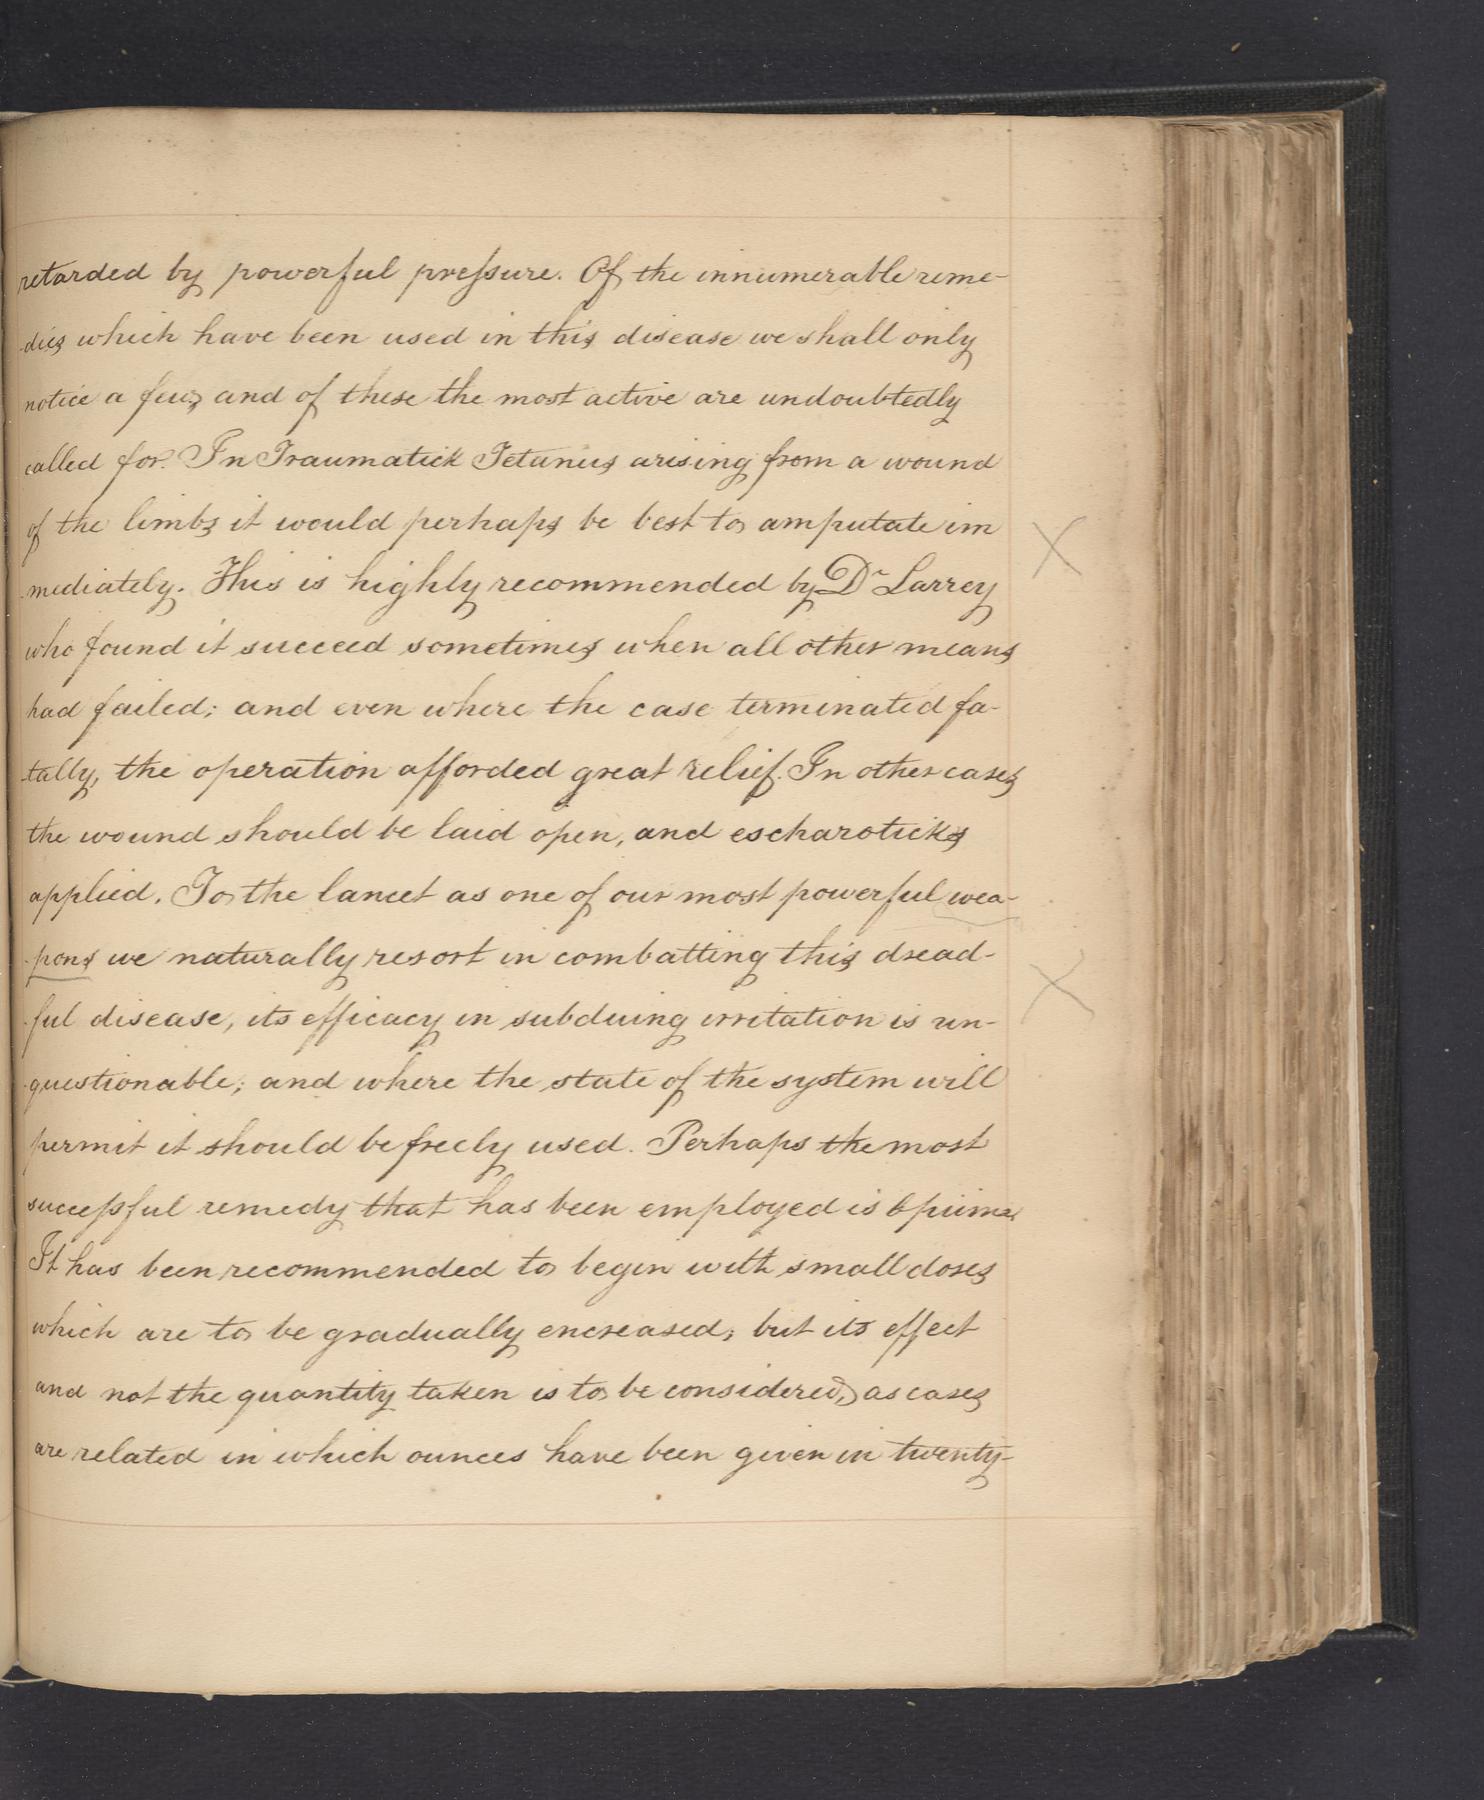 retarded by powerful pressure. Of the innumerable reme-
-dies which have been used in this disease we shall only
notice a few, and of these the most active are undoubtedly
called for. In Traumatick Tetanus arising from a wound
of the limbs it would perhaps be best to amputate im
-mediately. This is highly recommended by Dr Larrey
who found it succeed sometimes when all other means
had failed; and even where the case terminated fa-
-tally, the operation afforded great relief. In other cases
the wound should be laid open, and escharoticks
applied. To the lancet as one of our most powerful wea-
-pons we naturally resort in combatting this dread-
-ful disease, its efficacy in subduing irritation is un-
-questionable; and where the state of the system will
permit it should be freely used. Perhaps the most
successful remedy that has been employed is Opium.
It has been recommended to begin with small doses
which are to be gradually encreased, but its effect
and not the quantity taken is to be considered, as cases
are related in which ounces have been given in twenty-